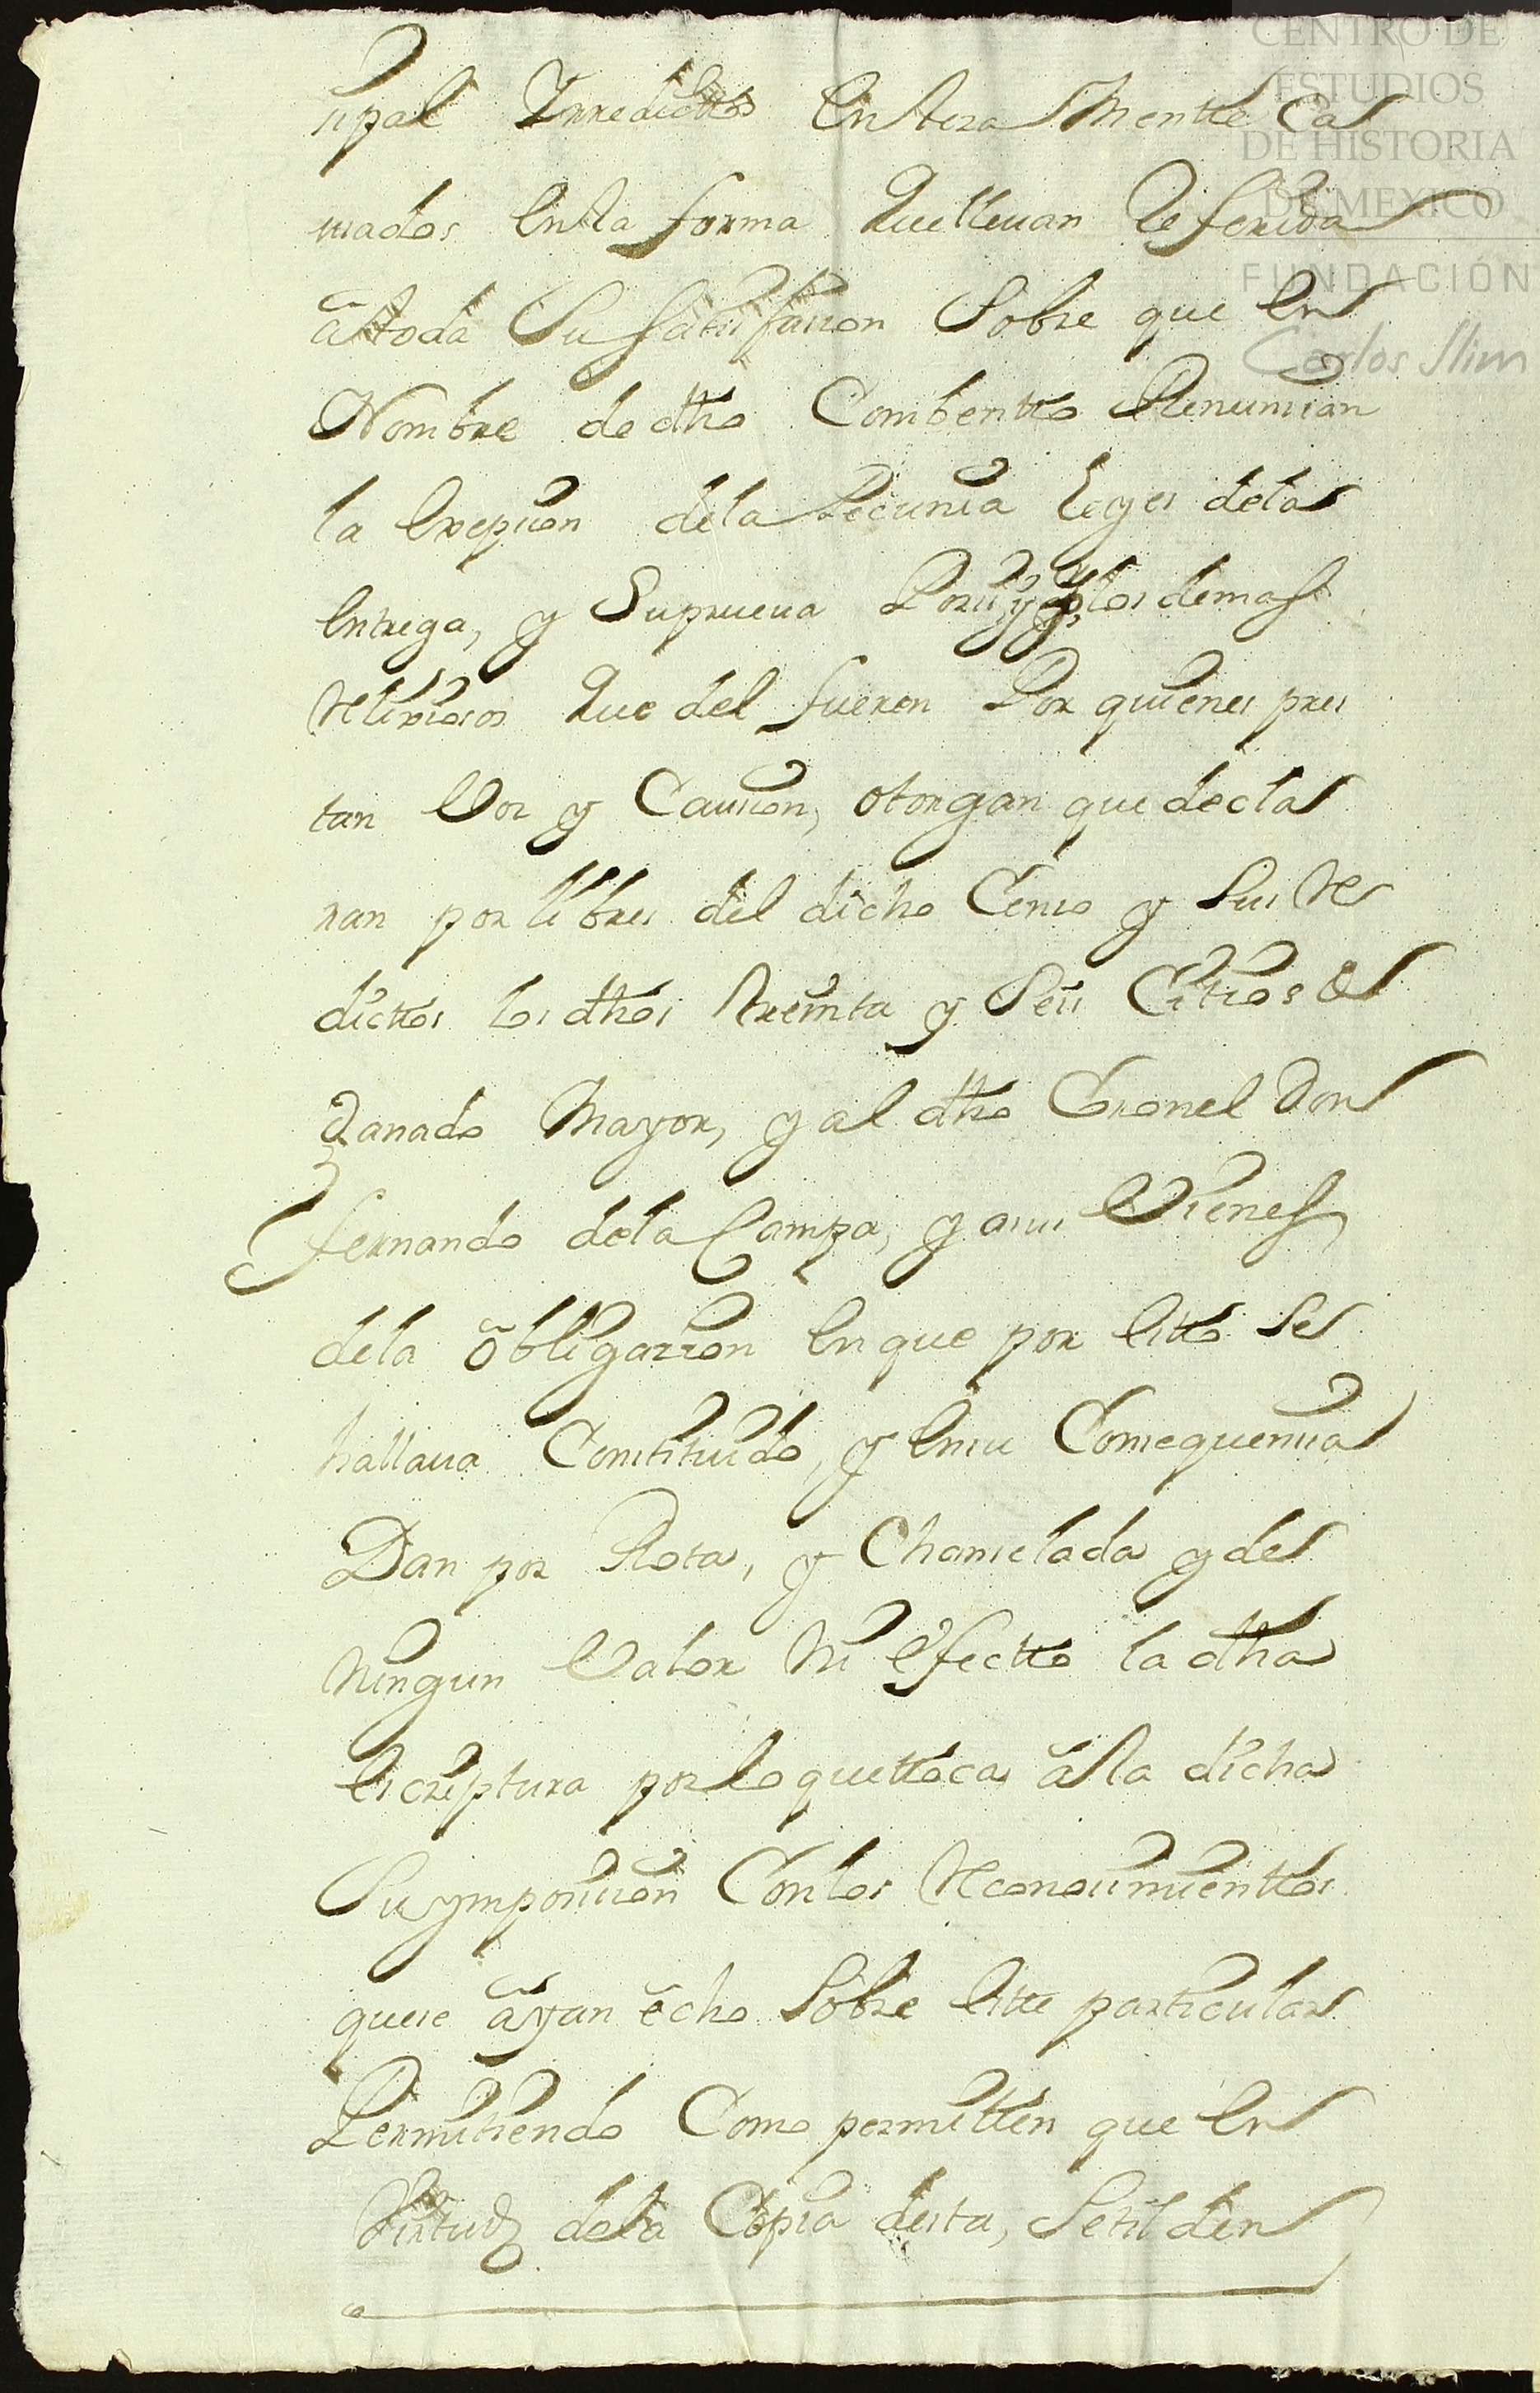 CENTRO DE
ESTUDIOS
DE HISTORIA
DE MEXICO
FUNDACIÓN
Carlos Slim
sipal Y rredictos Entera Mentte Ca
uiados Enla forma que lleuan Referida
ã ttoda Su satisfacion Sobre que En
Nombre de dho Combentto Renuncian
la Exepcion dela Pecunia Leyes dela
Entrega, y Suprueua Porsi, y por los demas
Relixiosos que del fueren Por quienes pres
tan Voz y Caucion, otorgan que decla
ran por libres del dicho Censo y Sus Re
dictos los dhos treinta y Seis Citios de
Ganado Mayor, y al dho Coronel Don
fernando dela Campa, y asus Vienes
dela õbligazion En que por Estto Se
hallaua Constituido, y Ensu Consequencia
Dan por Rota, y Chanselada y de
Ningun Valor Ni Efectto la dha
Escriptura por lo quettoca ã la dicha
Su ymposicion Con los Reconocimienttos
quese ãyan ẽcho Sobre Estte particular
Permitiendo Como permitten que En
Virtud dela Copia desta, Setilden